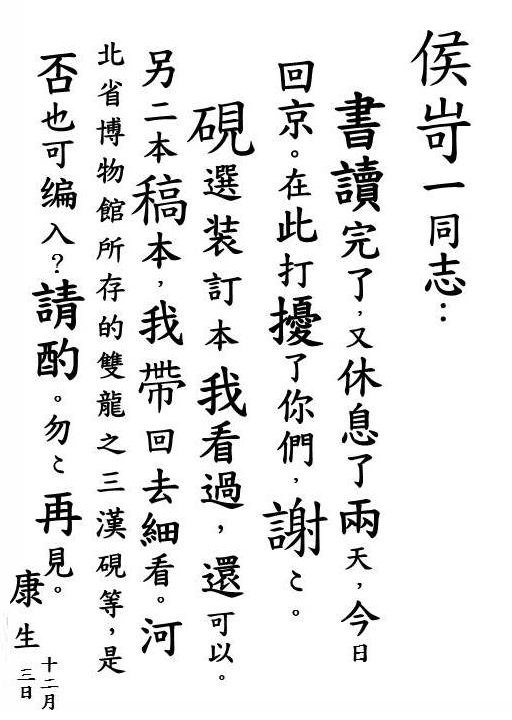 侯岢一同志：
書讀完了，又休息了兩天，今日
回京。在此打擾了你們，謝〻。
硯選装訂本我看過，還可以。
另二本稿本，我帶回去細看。河
北省博物館所存的雙龍之三漢硯等，是
否也可编入？請酌。勿〻再見。
康生
十二月
三日